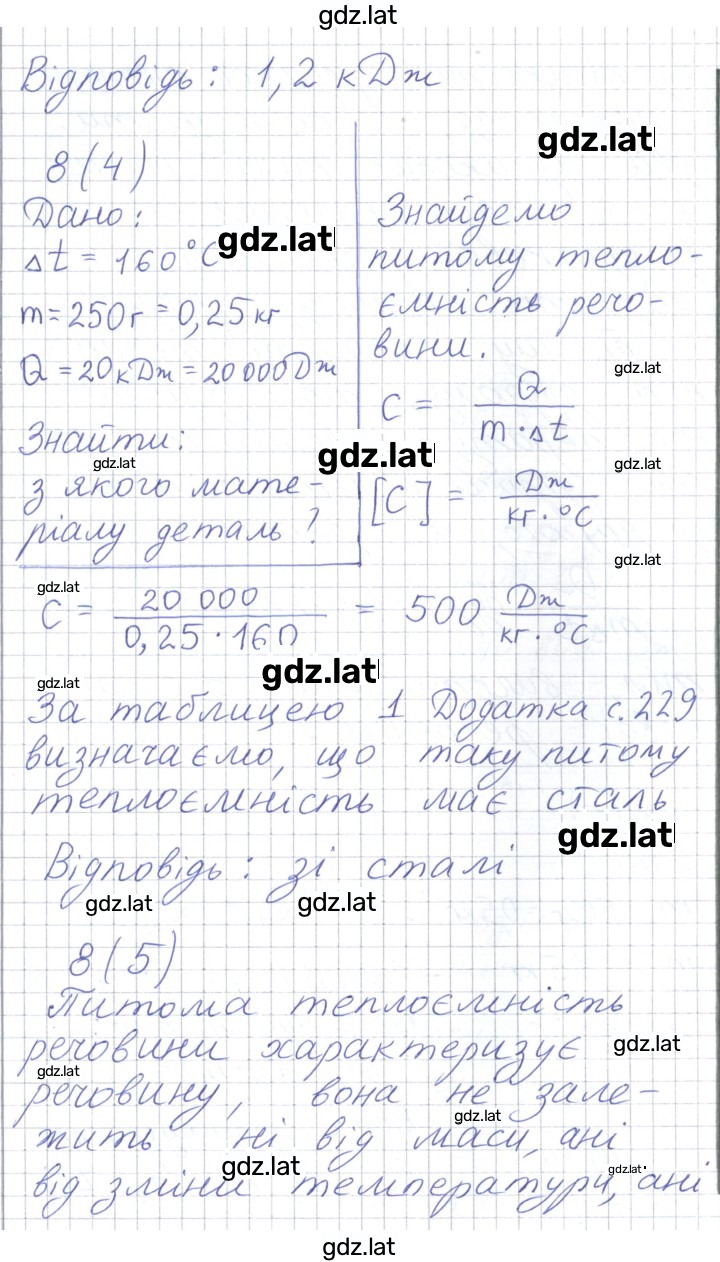 gdz.lat
Відповідь: 1,2 кДж
gdz.lat
8(4)
Дано:
Δt = 160°C
gdz.lat
m = 250г = 0,25 кг
Q = 20 кДж = 20 000 Дж
Знайти:
gdz.lat
з якого мате-
ріалу деталь?
Знайдемо
питому тепло-
ємність речо-
вини.
gdz.lat
C = Q / (m · Δt)
gdz.lat
gdz.lat
[C] = Дж / (кг · °C)
gdz.lat
gdz.lat
C = 20 000 / (0,25 · 160) = 500 Дж / (кг · °C)
gdz.lat
gdz.lat
За таблицею 1 Додатка с.229
визначаємо, що таку питому
теплоємність має сталь
gdz.lat
Відповідь: зі сталі
gdz.lat
gdz.lat
8(5)
Питома теплоємність
речовини характеризує
gdz.lat
gdz.lat
речовину, вона не зале-
gdz.lat
жить ні від маси, ані
gdz.lat
gdz.lat
від зміни температури, ані
gdz.lat